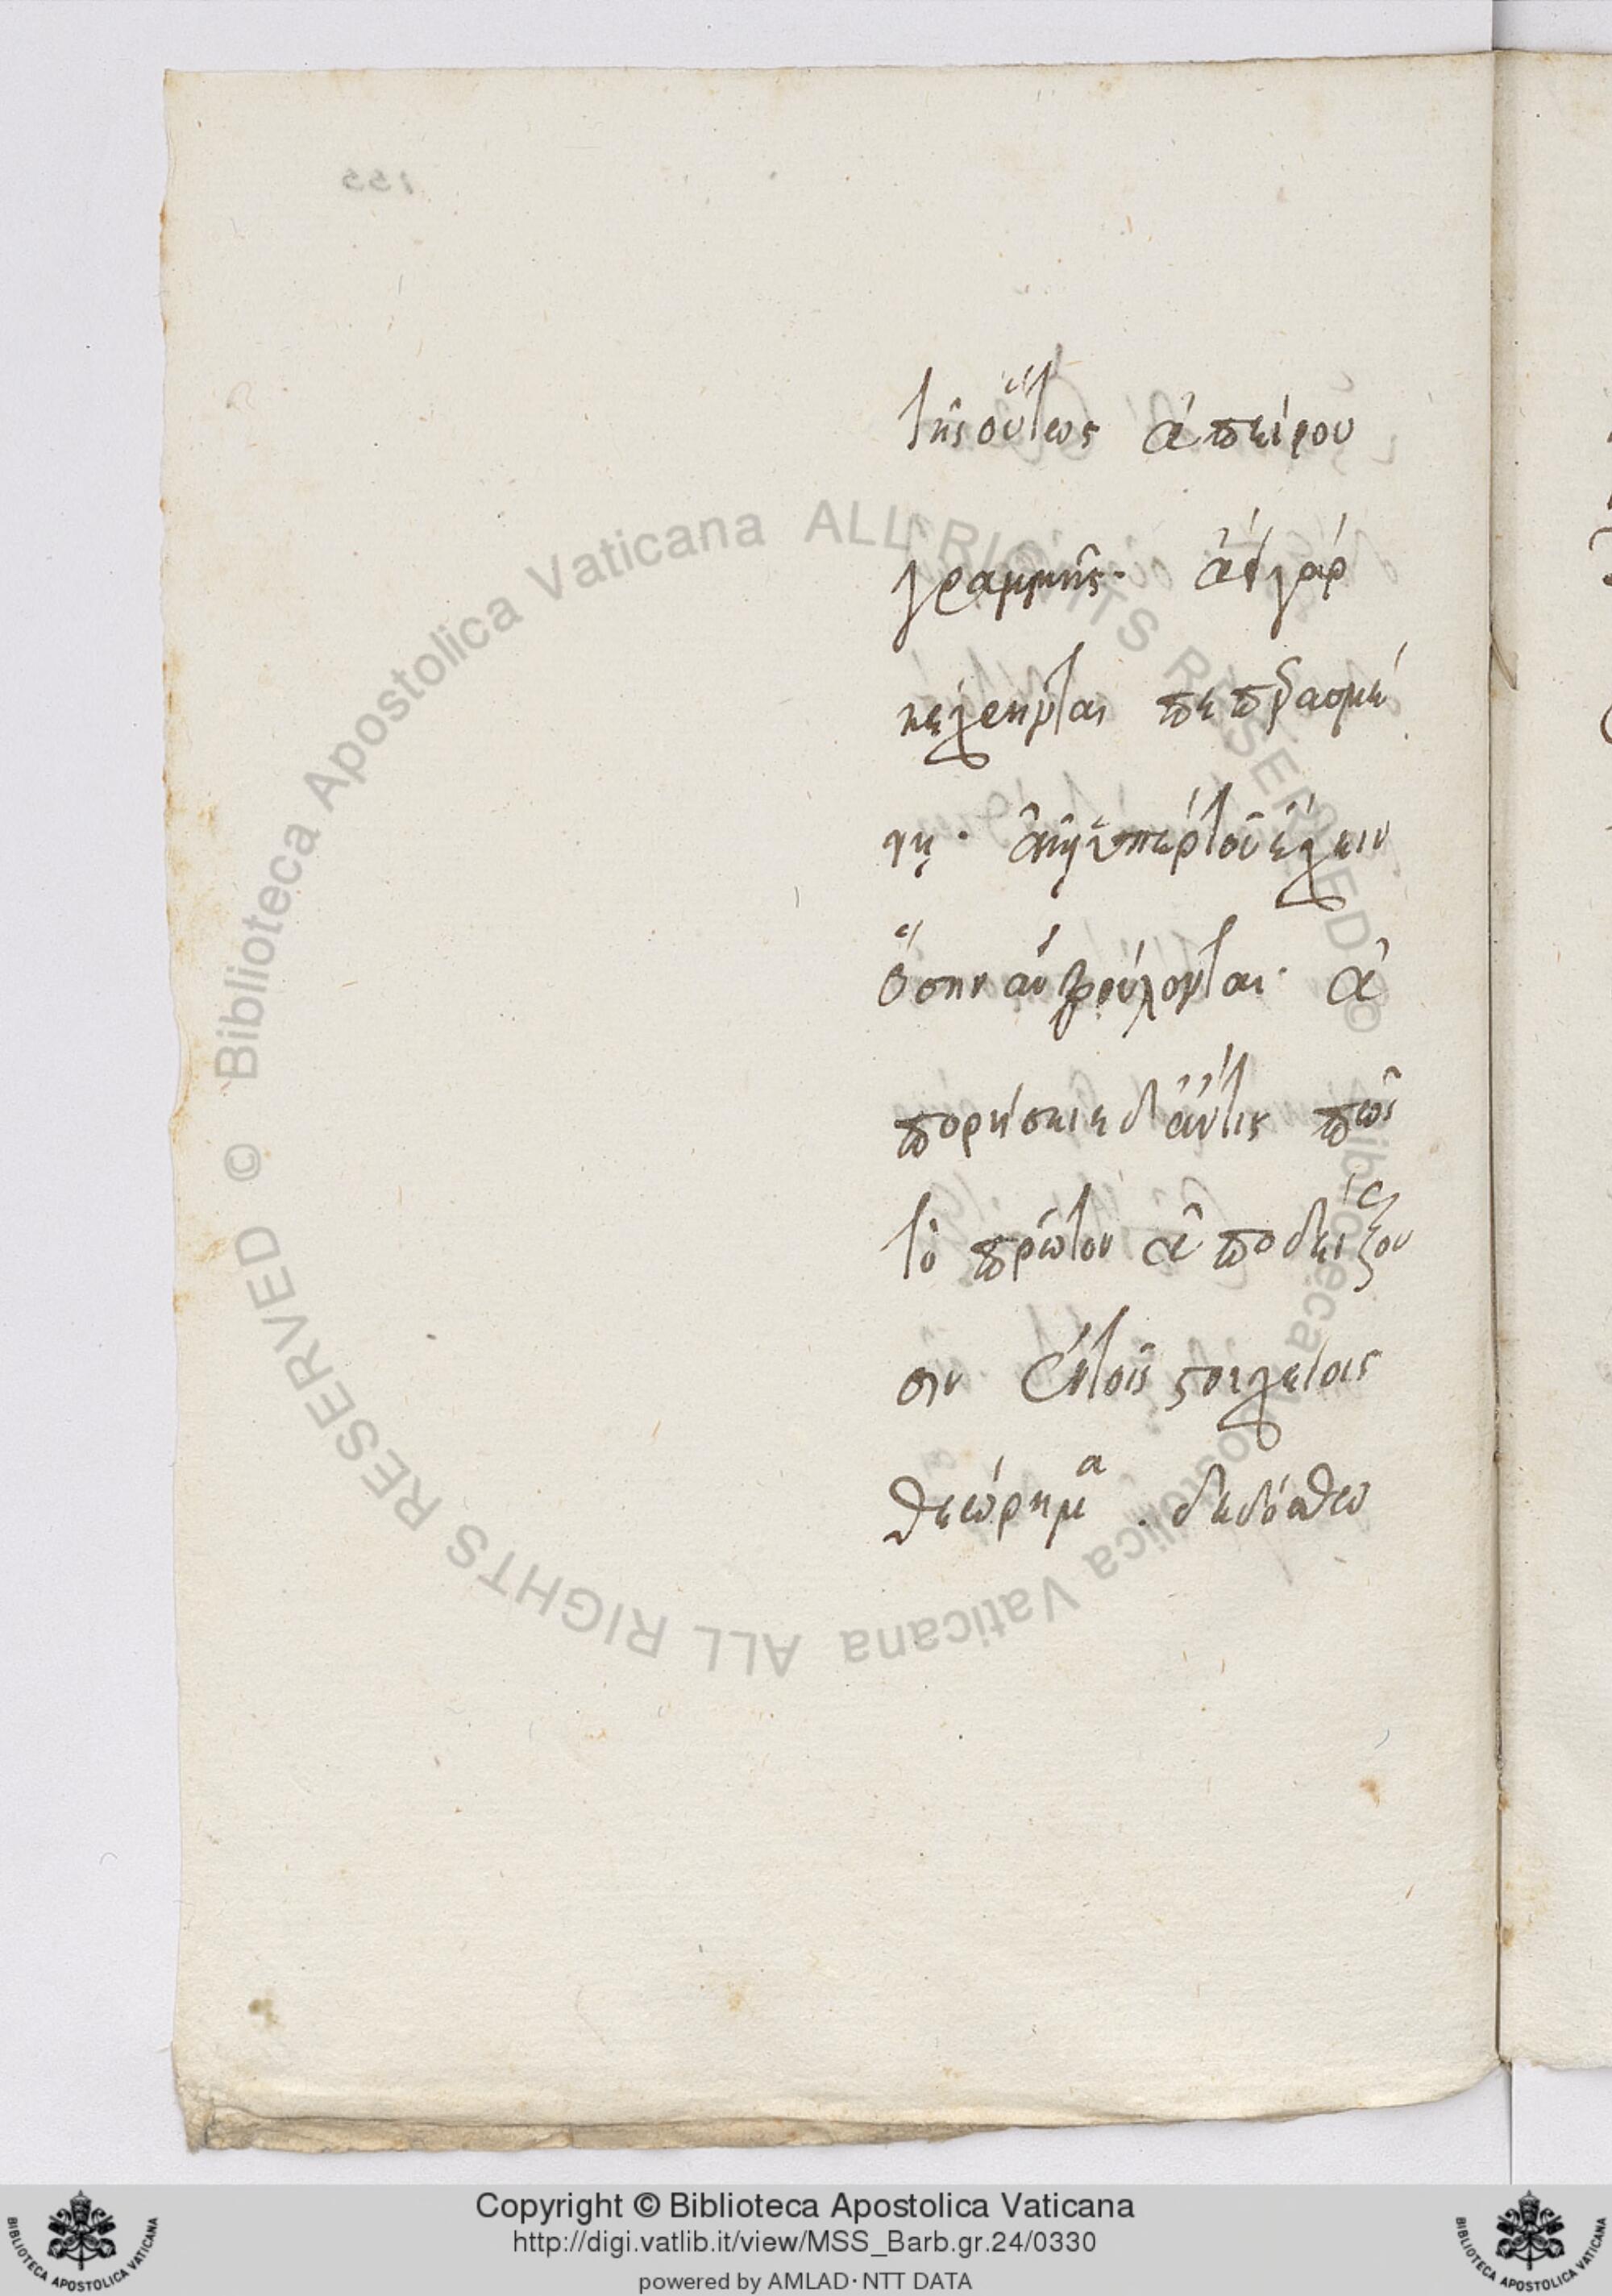 τῆς οὕτως ἀπείρου
γραμμῆς· ἀεὶ γὰρ
κέχρηνται πεπερασμέ
νῃ· ἀντὶ ὑπὲρ τοῦ ἔχειν
ὅσην ἂν βούλονται· ἀ
πορήσειε δ' ἄν τις πῶς
τὸ πρῶτον ἀποδείξου
σιν ἐν τοῖς στοιχείοις
θεώρημα. δεδόσθω
155
© Biblioteca Apostolica Vaticana ALL RIGHTS RESERVED © Biblioteca Apostolica Vaticana ALL RIGHTS RESERVED
Copyright © Biblioteca Apostolica Vaticana
http://digi.vatlib.it/view/MSS_Barb.gr.24/0330
powered by AMLAD·NTT DATA
BIBLIOTECA APOSTOLICA VATICANA
BIBLIOTECA APOSTOLICA VATICANA